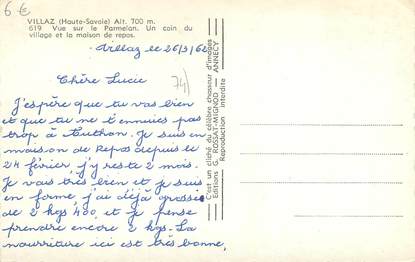 6 €
VILLAZ (Haute-Savoie) Alt. 700 m.
619 Vue sur le Parmelan. Un coin du
village et la maison de repos.
Villaz le 26/3/62
74)
Chère Lucie
J'espère que tu vas bien
et que tu ne t'ennuies pas
trop à Authon. Je suis en
maison de Repos depuis le
24 février j'y reste 2 mois.
Je vais très bien et je suis
en forme j'ai déjà grossie
de 2 kgs,400 et je pense
prendre encore 2 kgs. La
nourriture ici est très bonne,
C'est un cliché du célèbre chasseur d'images
Editions G. ROSSAT-MIGNOD - ANNECY
Reproduction interdite